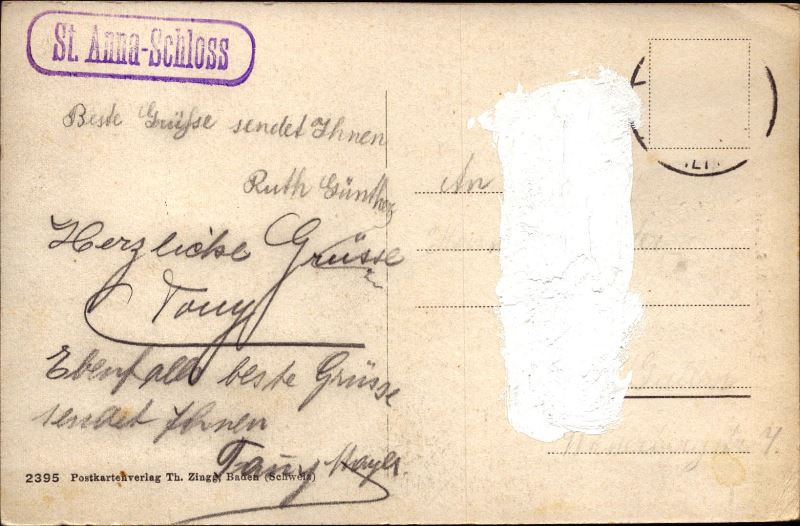 St. Anna-Schloss
Beste Grüsse sendet Ihnen
Ruth Günther
Herzliche Grüsse
Tony
Ebenfalls beste Grüsse
sendet Ihnen
Fanny Mayer
2395 Postkartenverlag Th. Zingg, Baden (Schweiz)
An